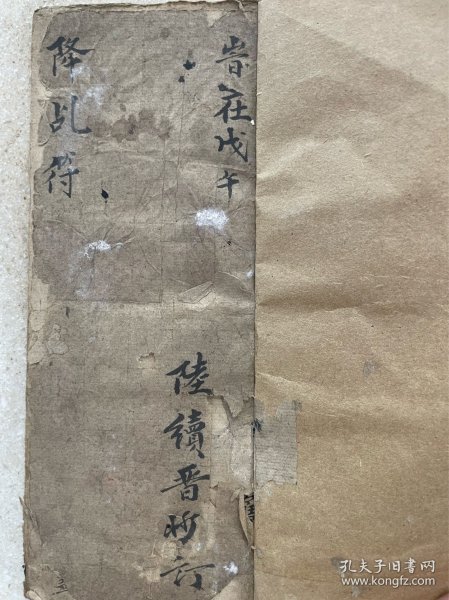 岩在戊午
陸續晋抄訂
降乩符
孔夫子旧书网
www.kongfz.com